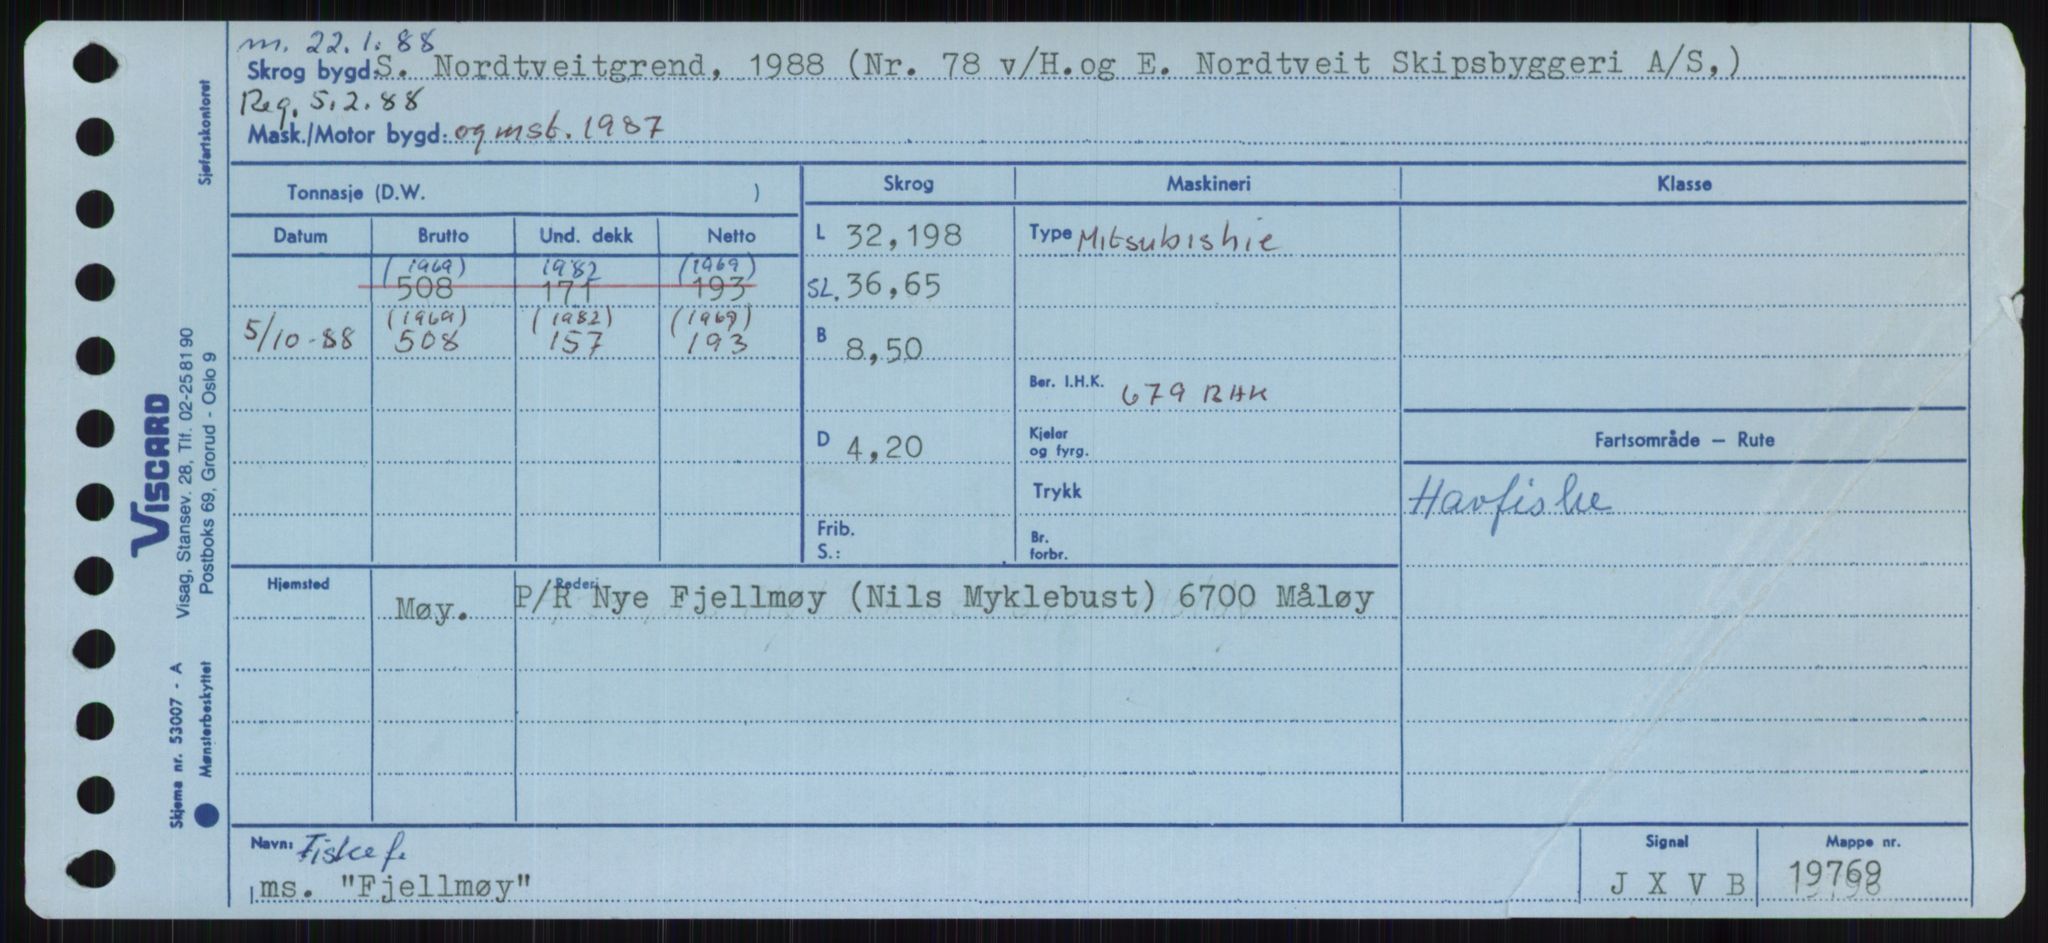 m. 22.1.88
Skrog bygd: S. Nordtveitgrend, 1988 (Nr. 78 v/H.og E. Nordtveit Skipsbyggeri A/S,)
Reg. 5.2.88
Mask./Motor bygd: og mst. 1987
Tonnasje (D.W. )
Skrog Maskineri Klasse
Datum Brutto Und. dekk Netto
L 32,198 Type Mitsubishie
(1969) 1982 (1969)
508 171 193
SL. 36,65
(1969) (1982) (1969)
5/10-88 508 157 193
B 8,50
Ber. I.H.K. 679 BHK
D 4,20
Kjeler
og fyrg.
Fartsområde — Rute
Trykk
Havfiske
Frib.
S.:
Br.
forbr.
Hjemsted Rederi
Møy. P/R Nye Fjellmøy (Nils Myklebust) 6700 Måløy
Navn: Fiskef.
ms. "Fjellmøy"
Signal Mappe nr.
J X V B 19769
Sjøfartskontoret
VISCARD
Visag, Stansev. 28, Tlf. 02-25 81 90
Postboks 69, Grorud - Oslo 9
Skjema nr. 53007 - A
Mønsterbeskyttet